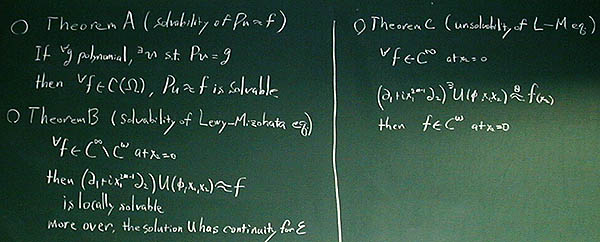 ○ Theorem A (solvability of Pu≈f)
If ∀g polynomial, ∃u s.t. Pu=g
then ∀f∈C(Ω), Pu≈f is solvable
○ Theorem B (solvability of Lewy-Mizohata eq)
∀f∈C^∞\C^ω at x₂=0
then (∂₁+ix₁^{2m-1}∂₂)U(ϕ,x₁,x₂)≈f
is locally solvable
more over, the solution U has continuity for ε
○ Theorem C (unsolvability of L-M eq)
∀f∈C^∞ at x₂=0
(∂₁+ix₁^{2m-1}∂₂)∃U(ϕ,x₁,x₂)≈f(x₂)
then f∈C^ω at x₂=0